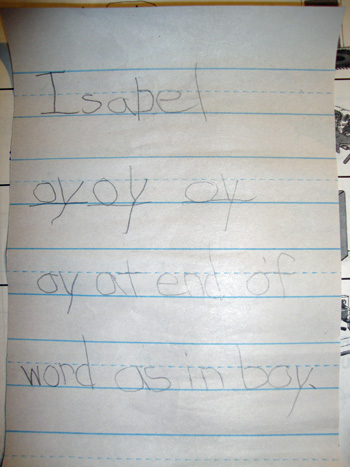 Isabel
oy oy oy
oy at end of
word as in boy.